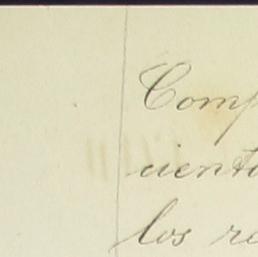 Comp
cient
los re